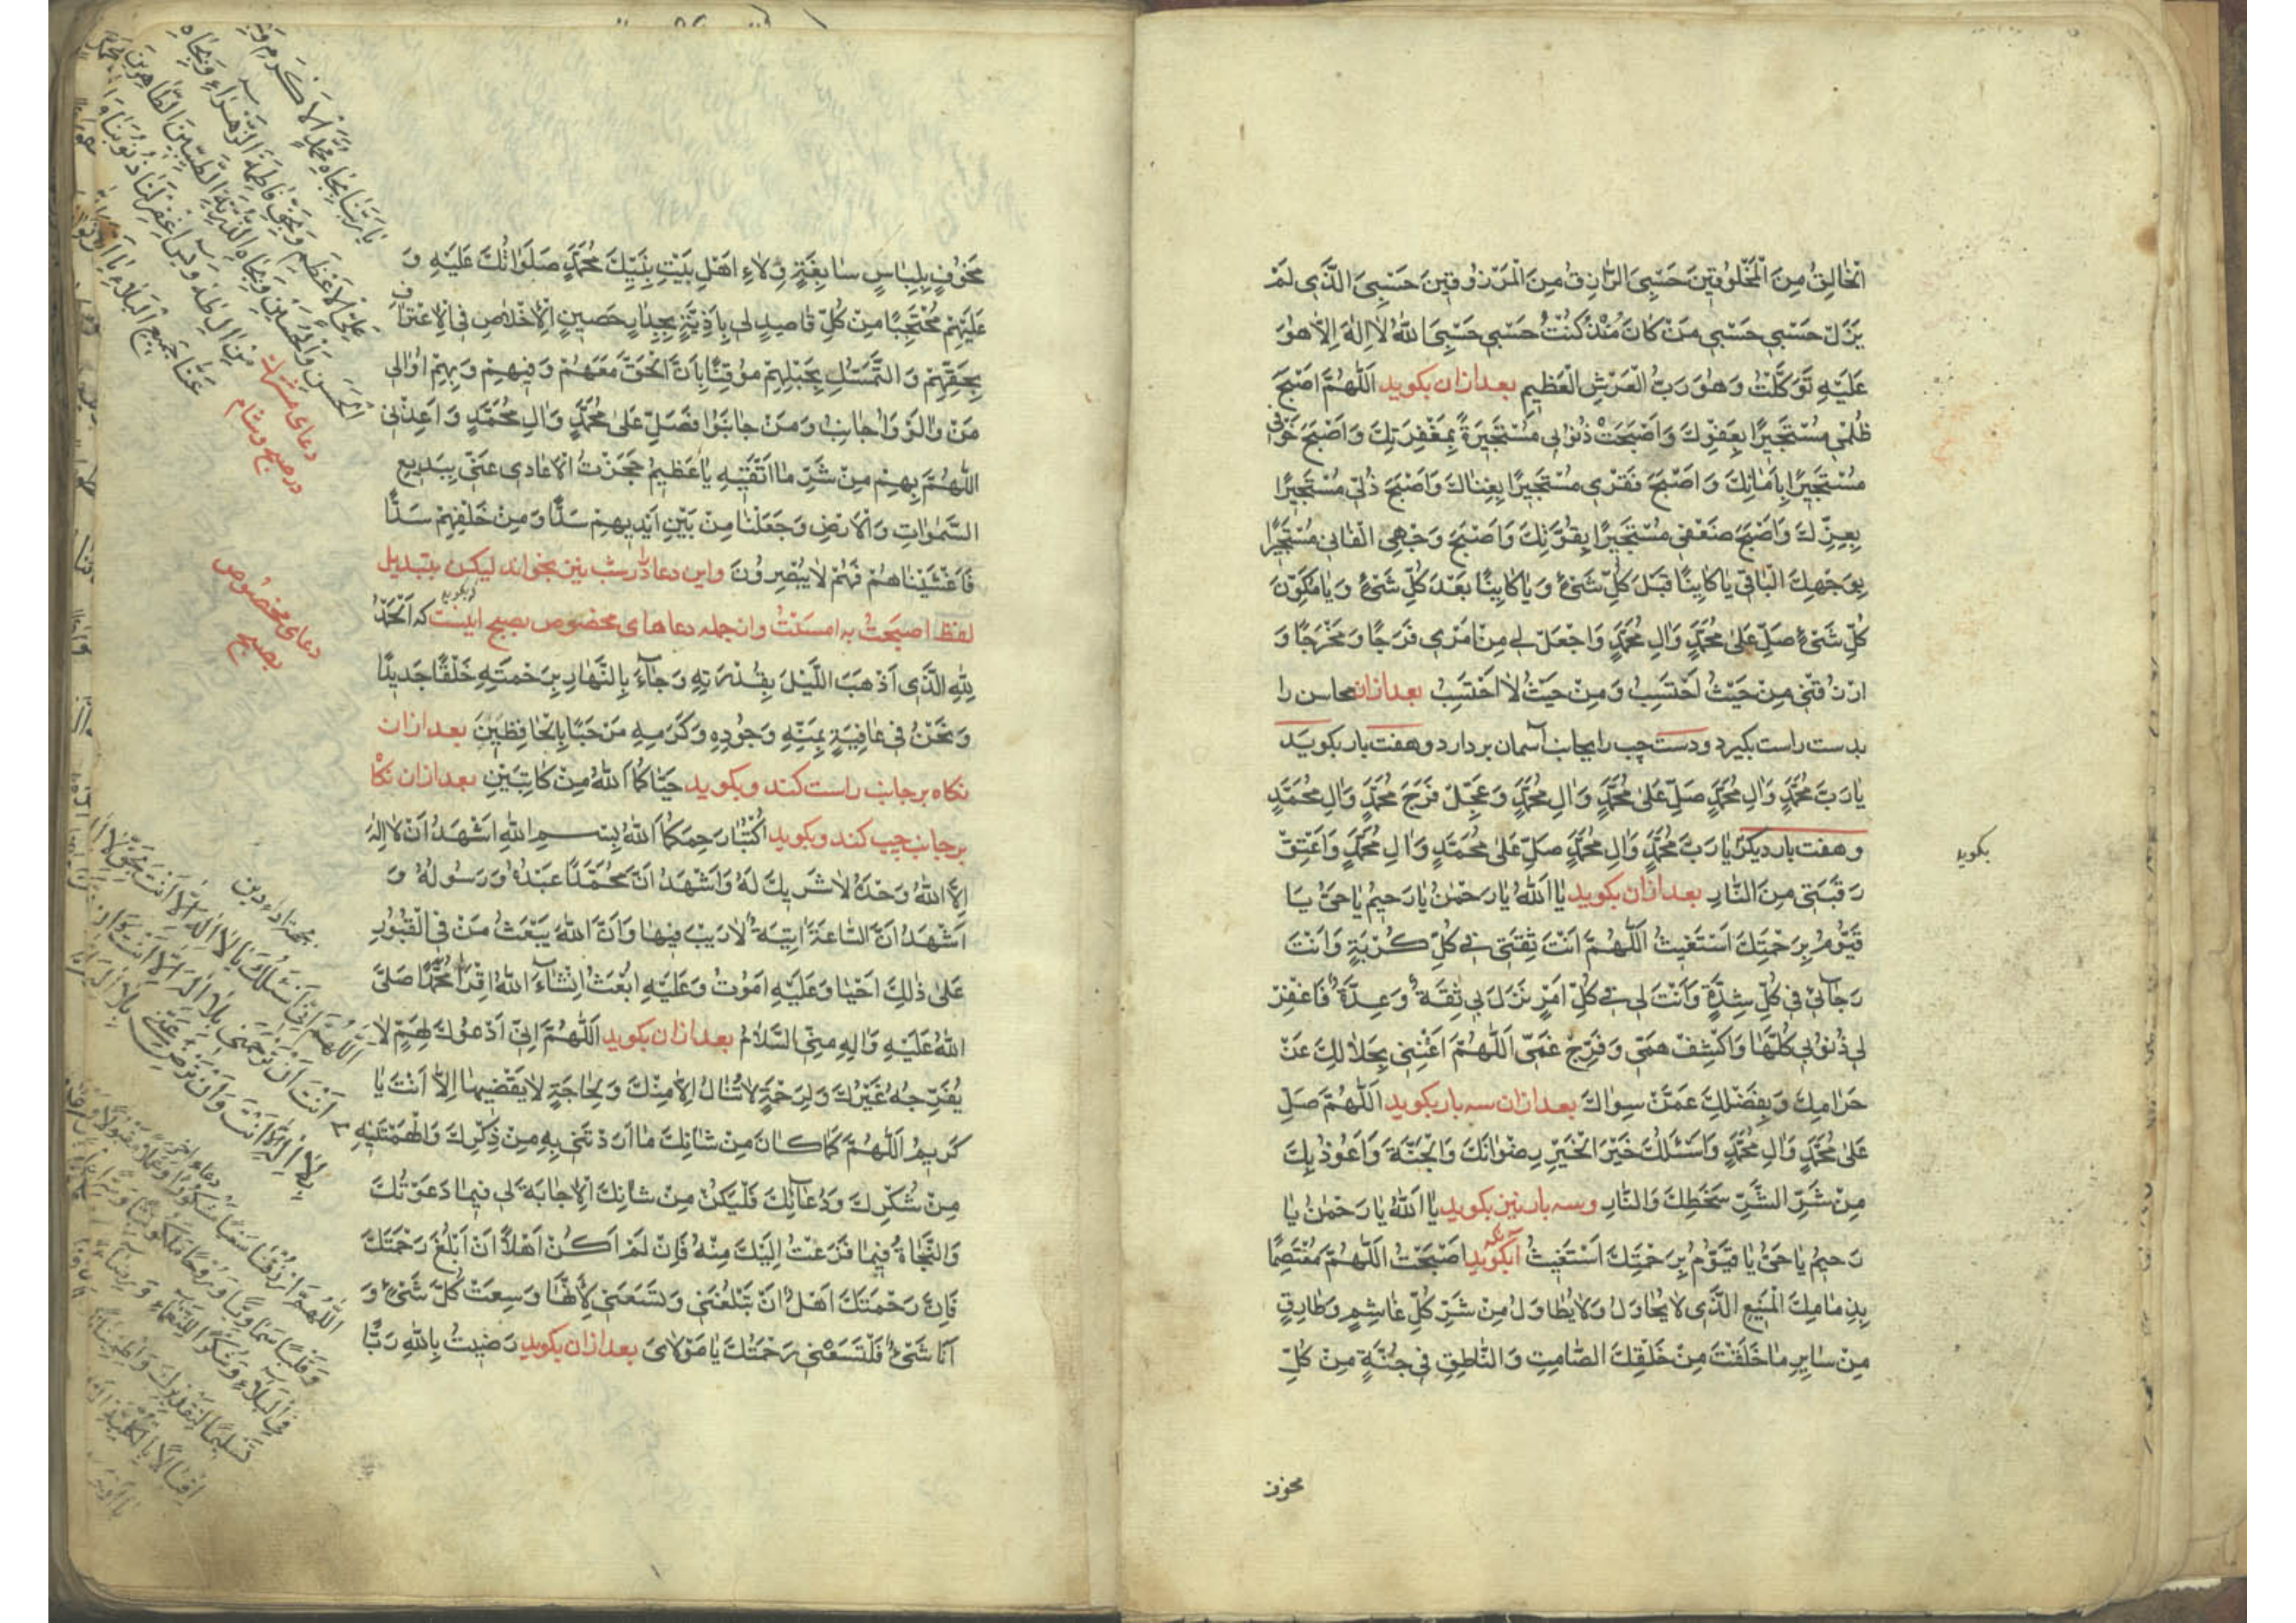 الْخٰالِقُ مِنَ الْمَخْلُوقٖينَ حَسْبِیَ الرّٰازِقُ مِنَ الْمَرْزُوقٖينَ حَسْبِیَ الَّذٖی لَمْ
يَزَلْ حَسْبٖی حَسْبٖی مَنْ كٰانَ مُنْذُ كُنْتُ حَسْبٖی حَسْبِیَ اللّٰهُ لٰا اِلٰهَ اِلّٰا هُوَ
عَلَيْهِ تَوَكَّلْتُ وَهُوَ رَبُّ الْعَرْشِ الْعَظٖيمِ بعد ازان بكويد اَللّٰهُمَّ اَصْبَحَ
ظُلْمٖی مُسْتَجٖيرًا بِعَفْوِكَ وَاَصْبَحَتْ ذُنُوبٖی مُسْتَجٖيرَةً بِمَغْفِرَتِكَ وَاَصْبَحَ خَوْفٖی
مُسْتَجٖيرًا بِاَمٰانِكَ وَاَصْبَحَ فَقْرٖی مُسْتَجٖيرًا بِغِنٰاكَ وَاَصْبَحَ ذُلّٖی مُسْتَجٖيرًا
بِعِزِّكَ وَاَصْبَحَ ضَعْفٖی مُسْتَجٖيرًا بِقُوَّتِكَ وَاَصْبَحَ وَجْهِیَ الْفٰانٖی مُسْتَجٖيرًا
بِوَجْهِكَ الْبٰاقٖی يٰا كٰائِنًا قَبْلَ كُلِّ شَیْءٍ وَيٰا كٰائِنًا بَعْدَ كُلِّ شَیْءٍ وَيٰا مُكَوِّنَ
كُلِّ شَیْءٍ صَلِّ عَلٰی مُحَمَّدٍ وَاٰلِ مُحَمَّدٍ وَاجْعَلْ لٖی مِنْ اَمْرٖی فَرَجًا وَمَخْرَجًا وَ
ارْزُقْنٖی مِنْ حَيْثُ اَحْتَسِبُ وَمِنْ حَيْثُ لٰا اَحْتَسِبُ بعد ازان محاسن را
بدست راست بكيرد و دست چپ را بجانب آسمان بردارد و هفت بار بكويد
يٰا رَبَّ مُحَمَّدٍ وَاٰلِ مُحَمَّدٍ صَلِّ عَلٰی مُحَمَّدٍ وَاٰلِ مُحَمَّدٍ وَعَجِّلْ فَرَجَ مُحَمَّدٍ وَاٰلِ مُحَمَّدٍ
و هفت بار ديكر يٰا رَبَّ مُحَمَّدٍ وَاٰلِ مُحَمَّدٍ صَلِّ عَلٰی مُحَمَّدٍ وَاٰلِ مُحَمَّدٍ وَاَعْتِقْ
بكويد
رَقَبَتٖی مِنَ النّٰارِ بعد ازان بكويد يٰا اَللّٰهُ يٰا رَحْمٰنُ يٰا رَحٖيمُ يٰا حَیُّ يٰا
قَيُّومُ بِرَحْمَتِكَ اَسْتَغٖيثُ اَللّٰهُمَّ اَنْتَ ثِقَتٖی فٖی كُلِّ كُرْبَةٍ وَاَنْتَ
رَجٰائٖی فٖی كُلِّ شِدَّةٍ وَاَنْتَ لٖی فٖی كُلِّ اَمْرٍ نَزَلَ بٖی ثِقَةٌ وَعِدَّةٌ فَاغْفِرْ
لٖی ذُنُوبٖی كُلَّهٰا وَاكْشِفْ هَمّٖی وَفَرِّجْ غَمّٖی اَللّٰهُمَّ اغْنِنٖی بِحَلٰالِكَ عَنْ
حَرٰامِكَ وَبِفَضْلِكَ عَمَّنْ سِوٰاكَ بعد ازان سه بار بكويد اَللّٰهُمَّ صَلِّ
عَلٰی مُحَمَّدٍ وَاٰلِ مُحَمَّدٍ وَاَسْئَلُكَ خَيْرَ الْخَيْرِ رِضْوٰانَكَ وَالْجَنَّةَ وَاَعُوذُ بِكَ
مِنْ شَرِّ الشَّرِّ سَخَطِكَ وَالنّٰارِ و سه بار نيز بكويد يٰا اَللّٰهُ يٰا رَحْمٰنُ يٰا
رَحٖيمُ يٰا حَیُّ يٰا قَيُّومُ بِرَحْمَتِكَ اَسْتَغٖيثُ بكويد اَصْبَحْتُ اَللّٰهُمَّ مُعْتَصِمًا
بِذِمٰامِكَ الْمَنٖيعِ الَّذٖی لٰا يُحٰاوَلُ وَلٰا يُطٰاوَلُ مِنْ شَرِّ كُلِّ غٰاشِمٍ وَطٰارِقٍ
مِنْ سٰائِرِ مٰا خَلَقْتَ مِنْ خَلْقِكَ الصّٰامِتِ وَالنّٰاطِقِ فٖی جُنَّةٍ مِنْ كُلِّ
مخوف
مَخُوفٍ بِلِبٰاسٍ سٰابِغَةٍ وِلٰاءِ اَهْلِ بَيْتِ نَبِيِّكَ مُحَمَّدٍ صَلَوٰاتُكَ عَلَيْهِ وَ
عَلَيْهِمْ مُحْتَجِبًا مِنْ كُلِّ قٰاصِدٍ لٖی بِاَذِيَّةٍ بِجِدٰارٍ حَصٖينٍ الْاِخْلٰاصِ فِی الْاِعْتِرٰافِ
بِحَقِّهِمْ وَالتَّمَسُّكِ بِحَبْلِهِمْ مُوقِنًا بِاَنَّ الْحَقَّ مَعَهُمْ وَفٖيهِمْ وَبِهِمْ اُوٰالٖی
مَنْ وٰالَوْا وَاُجٰانِبُ مَنْ جٰانَبُوا فَصَلِّ عَلٰی مُحَمَّدٍ وَاٰلِ مُحَمَّدٍ وَاَعِذْنٖی
اللّٰهُمَّ بِهِمْ مِنْ شَرِّ مٰا اَتَّقٖيهِ يٰا عَظٖيمُ حَجَزْتُ الْاَعٰادٖی عَنّٖی بِبَدٖيعِ
السَّمٰوٰاتِ وَالْاَرْضِ وَجَعَلْنٰا مِنْ بَيْنِ اَيْدٖيهِمْ سَدًّا وَمِنْ خَلْفِهِمْ سَدًّا
فَاَغْشَيْنٰاهُمْ فَهُمْ لٰا يُبْصِرُونَ و اين دعا در شب نيز بخواند ليكن بتبديل
لفظ اصبحت به امسيت و از جمله دعاهای مخصوص بصبح اينست كه بكويد اَلْحَمْدُ
لِلّٰهِ الَّذٖی اَذْهَبَ اللَّيْلَ بِقُدْرَتِهِ وَجٰاءَ بِالنَّهٰارِ بِرَحْمَتِهِ خَلْقًا جَدٖيدًا
وَنَحْنُ فٖی عٰافِيَةٍ بِمَنِّهِ وَجُودِهِ وَكَرَمِهِ مَرْحَبًا بِالْحٰافِظَيْنِ بعد ازان
نكاه بر جانب راست كند و بكويد حَيّٰاكُمَا اللّٰهُ مِنْ كٰاتِبَيْنِ بعد ازان نكاه
بر جانب چپ كند و بكويد اُكْتُبٰا رَحِمَكُمَا اللّٰهُ بِسْمِ اللّٰهِ اَشْهَدُ اَنْ لٰا اِلٰهَ
اِلَّا اللّٰهُ وَحْدَهُ لٰا شَرٖيكَ لَهُ وَاَشْهَدُ اَنَّ مُحَمَّدًا عَبْدُهُ وَرَسُولُهُ وَ
اَشْهَدُ اَنَّ السّٰاعَةَ اٰتِيَةٌ لٰا رَيْبَ فٖيهٰا وَاَنَّ اللّٰهَ يَبْعَثُ مَنْ فِی الْقُبُورِ
عَلٰی ذٰلِكَ اَحْيٰا وَعَلَيْهِ اَمُوتُ وَعَلَيْهِ اُبْعَثُ اِنْشٰاءَ اللّٰهُ اِقْرَاْ مُحَمَّدًا صَلَّی
اللّٰهُ عَلَيْهِ وَاٰلِهِ مِنِّی السَّلٰامُ بعد ازان بكويد اَللّٰهُمَّ اِنّٖی اَدْعُوكَ لِهَمٍّ لٰا
يُفَرِّجُهُ غَيْرُكَ وَلِرَحْمَةٍ لٰا تُنٰالُ اِلّٰا مِنْكَ وَلِحٰاجَةٍ لٰا يَقْضٖيهٰا اِلّٰا اَنْتَ يٰا
كَرٖيمُ اَللّٰهُمَّ كَمٰا كٰانَ مِنْ شٰانِكَ مٰا اَرَدْتَنٖی بِهِ مِنْ ذِكْرِكَ وَاَلْهَمْتَنٖيهِ
مِنْ شُكْرِكَ وَدُعٰائِكَ فَلْيَكُنْ مِنْ شٰانِكَ الْاِجٰابَةُ لٖی فٖيمٰا دَعَوْتُكَ
وَالنَّجٰاةُ فٖيمٰا فَزِعْتُ اِلَيْكَ مِنْهُ فَاِنْ لَمْ اَكُنْ اَهْلًا اَنْ اَبْلُغَ رَحْمَتَكَ
فَاِنَّ رَحْمَتَكَ اَهْلٌ اَنْ تَبْلُغَنٖی وَتَسَعَنٖی لِاَنَّهٰا وَسِعَتْ كُلَّ شَیْءٍ وَ
اَنَا شَیْءٌ فَلْتَسَعْنٖی رَحْمَتُكَ يٰا مَوْلٰایَ بعد ازان بكويد رَضٖيتُ بِاللّٰهِ رَبًّا
يٰا رَبَّنٰا بِجٰاهِ مُحَمَّدٍ الْاَكْرَمِ
عَلِیٍّ الْاَعْظَمِ وَبِحَقِّ فٰاطِمَةَ الزَّهْرٰاءِ وَبِجٰاهِ
الْحَسَنِ وَالْحُسَيْنِ وَبِجٰاهِ الذُّرِّيَّةِ الطَّيِّبٖينَ الطّٰاهِرٖينَ
مِنْ اٰلِ طٰهٰ وَيٰس اِغْفِرْ لَنٰا ذُنُوبَنٰا
عَنّٰا جَمٖيعَ الْبَلٰاءِ يٰا
دعای مشترك
در صبح و شام
دعای مخصوص
بصبح
بجهة اداء دين
اَللّٰهُمَّ اِنّٖی اَسْئَلُكَ يٰا لٰا اِلٰهَ اِلّٰا اَنْتَ بِحَقِّ لٰا
اَنْتَ اَنْ تَرْحَمَنٖی بِلٰا اِلٰهَ اِلّٰا اَنْتَ
بِلٰا اِلٰهَ اِلّٰا اَنْتَ وَاَنْ تَرْضٰی عَنّٖی بِلٰا اِلٰهَ
دعاء اخر
اَللّٰهُمَّ ارْزُقْنٰا سَعْيًا مَشْكُورًا وَعَمَلًا مَقْبُولًا
وَقَلْبًا سَمٰاوِيًّا وَرُوحًا مَلَكُوتِيًّا
فِی الْبَلٰاءِ وَشُكْرًا لِلنَّعْمٰاءِ
تَسْلٖيمًا لِتَقْدٖيرِكَ